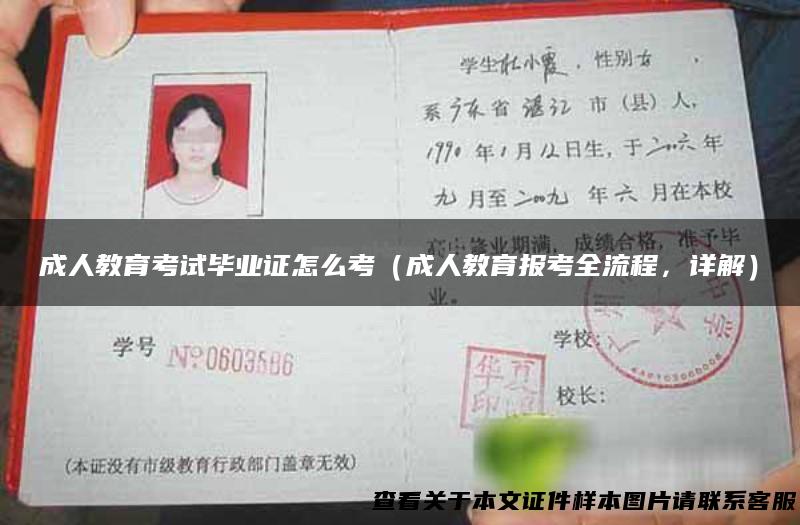 学生杜小霞，性别女，
系广东省湛江市（县）人，
1990年1月12日生，于二00六年
九月至二00九年六月在本校
高中修业期满，成绩合格，准予毕
成人教育考试毕业证怎么考（成人教育报考全流程，详解）
业。
学号 №0603586
学校：
校长：
(本证没有市级教育行政部门盖章无效)
查看关于本文证件样本图片请联系客服